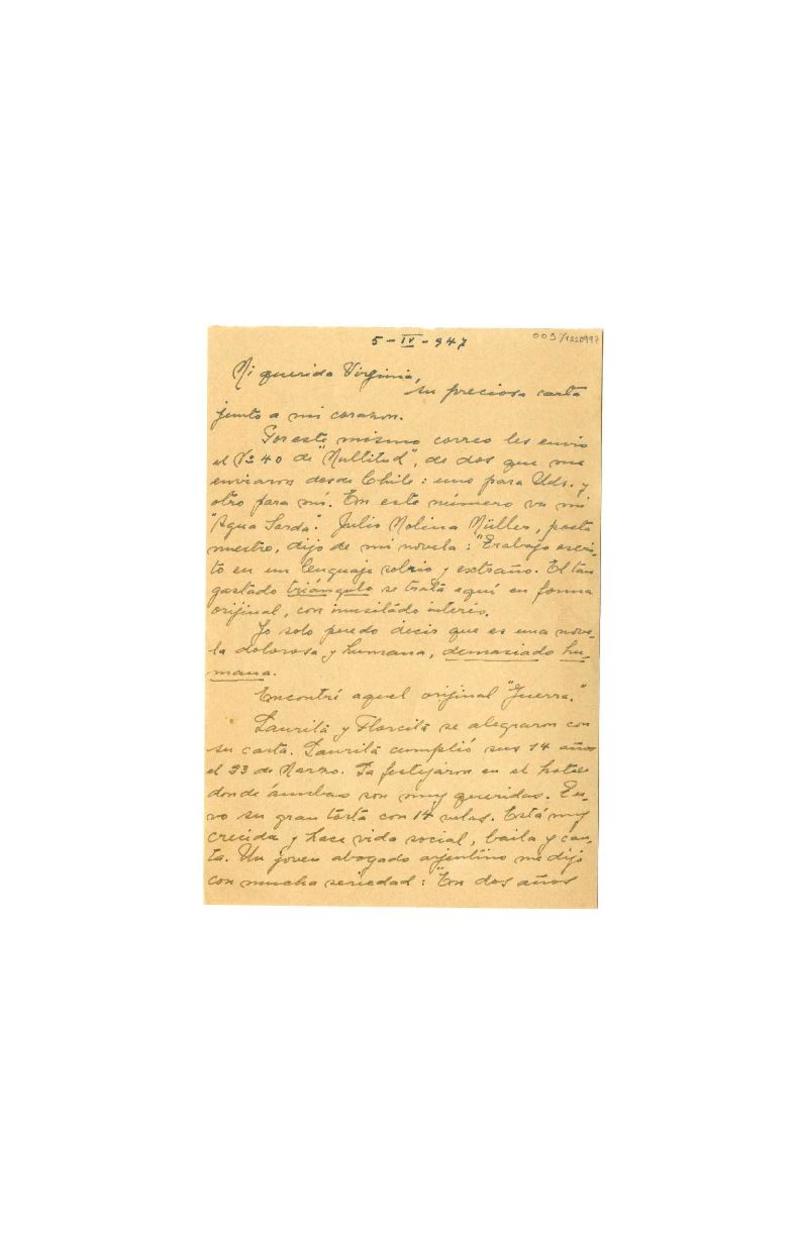 5-IV-947
Mi querida Virginia,
su preciosa carta
junto a mi corazon.
Por este mismo correo les envío
el Nº 40 de "Multitud", de dos que me
enviaron desde Chile: uno para Uds. y
otro para mí. En este número va mi
"Agua Sorda". Julio Molina Müller, poeta
nuestro, dijo de mi novela: "Trabajo escri-
to en un lenguaje sobrio y extraño. El tan
gastado triángulo se trata aquí en forma
orijinal, con inusitado interés.
Yo solo puedo decir que es una nove-
la dolorosa y humana, demasiado hu-
mana.
Encontré aquel orijinal "Guerra."
Laurita y Florcita se alegraron con
su carta. Laurita cumplió sus 14 años
el 23 de Marzo. La festejaron en el hotel
donde ámbas son muy queridas. Tu-
vo su gran torta con 14 velas. Está muy
crecida y hace vida social, baila y can-
ta. Un joven abogado arjentino me dijo
con mucha seriedad: "En dos años